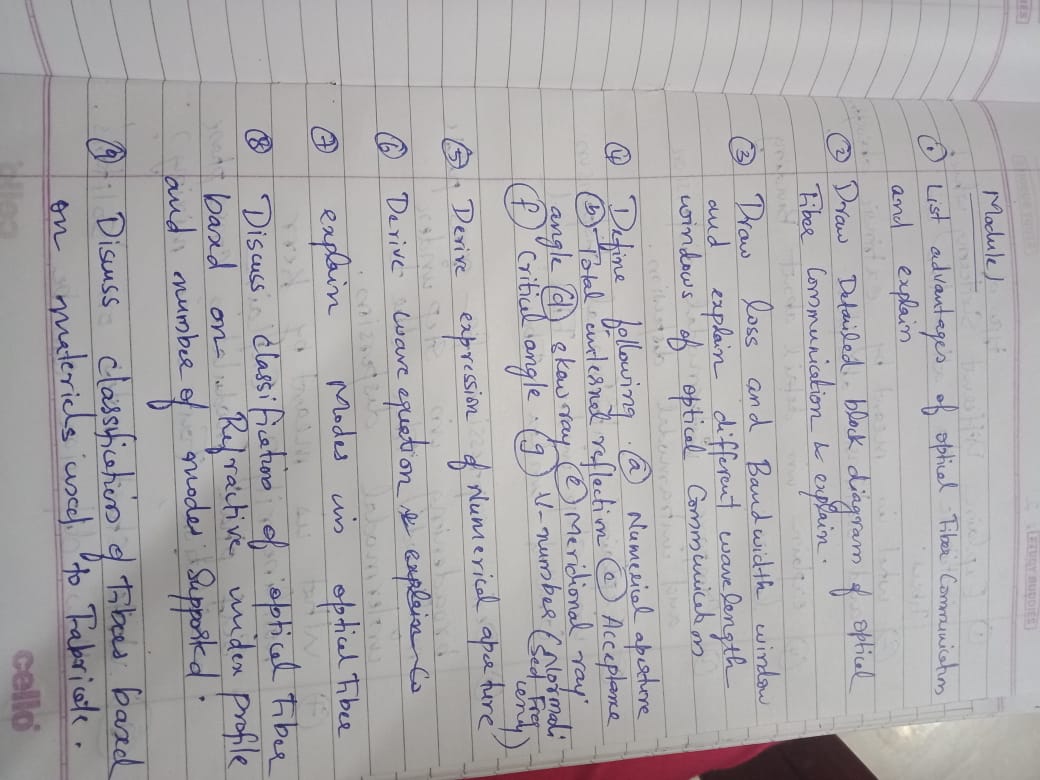 STUDY BUDDIES
Module 1
① List advantages of optical Fiber Communication
and explain
② Draw Detailed block diagram of optical
Fiber Communication & explain.
③ Draw loss and Bandwidth window
and explain different wavelength
windows of optical Communication
④ Define following. ⓐ Numerical aperture
ⓑ Total internal reflection ⓒ Acceptance
angle ⓓ skew ray ⓔ Meridional ray.
ⓕ Critical angle. ⓖ V-number (Normali
sed Freq
uency)
⑤ Derive expression of Numerical aperture
⑥ Derive wave equation
⑦ explain Modes in optical Fiber
⑧ Discuss classification of optical Fiber
based on Refractive index profile
and number of modes Supported.
⑨ Discuss classification of Fibers based
on materials used to Fabricate.
cello